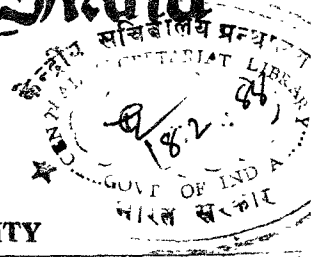 केन्द्रीय सचिवालय ग्रन्थागार
CENTRAL SECRETARIAT LIBRARY
18.2
GOVT OF INDIA
भारत सरकार
ITY